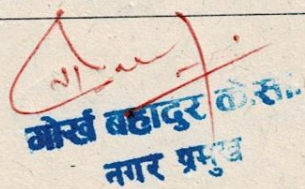 गोर्ख बहादुर के.सी.
नगर प्रमुख